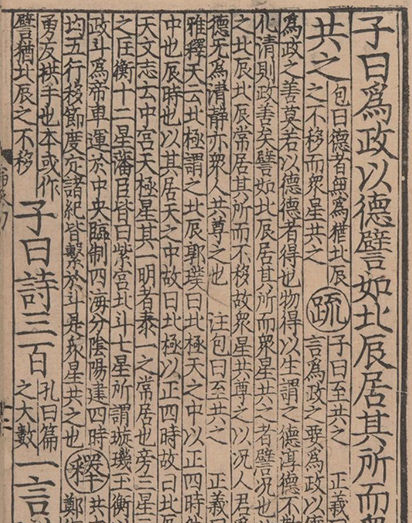 子曰爲政以德譬如北辰居其所而衆
共之
包曰德者無爲猶北辰
之不移而衆星共之
疏
子曰至共之 正義曰
言爲政之要爲政以德
爲政之善莫若以德德者得也物得以生謂之德淳德不
化清則政善矣譬如北辰居其所而衆星共之者譬況也
之北辰常居其所而不移故衆星共尊之以況人君爲
德无爲清靜亦衆人共尊之也 注包曰至共之 正義曰
雅釋天云北極謂之北辰郭璞曰北極天之中以正四時
中也辰時也以其居天之中故曰北極以正四時故曰北辰
天文志云中宮天極星其一明者泰一之常居也旁三星三
之匡衡十二星藩臣皆曰紫宮北斗七星所謂旋璣玉衡
政斗爲帝車運於中央臨制四海分陰陽建四時
均五行移節度定諸紀皆繫於斗是衆星共之也
釋
共
鄭
勇友拱手也本或作
譬猶北辰之不移
子曰詩三百
孔曰篇
之大數
一言